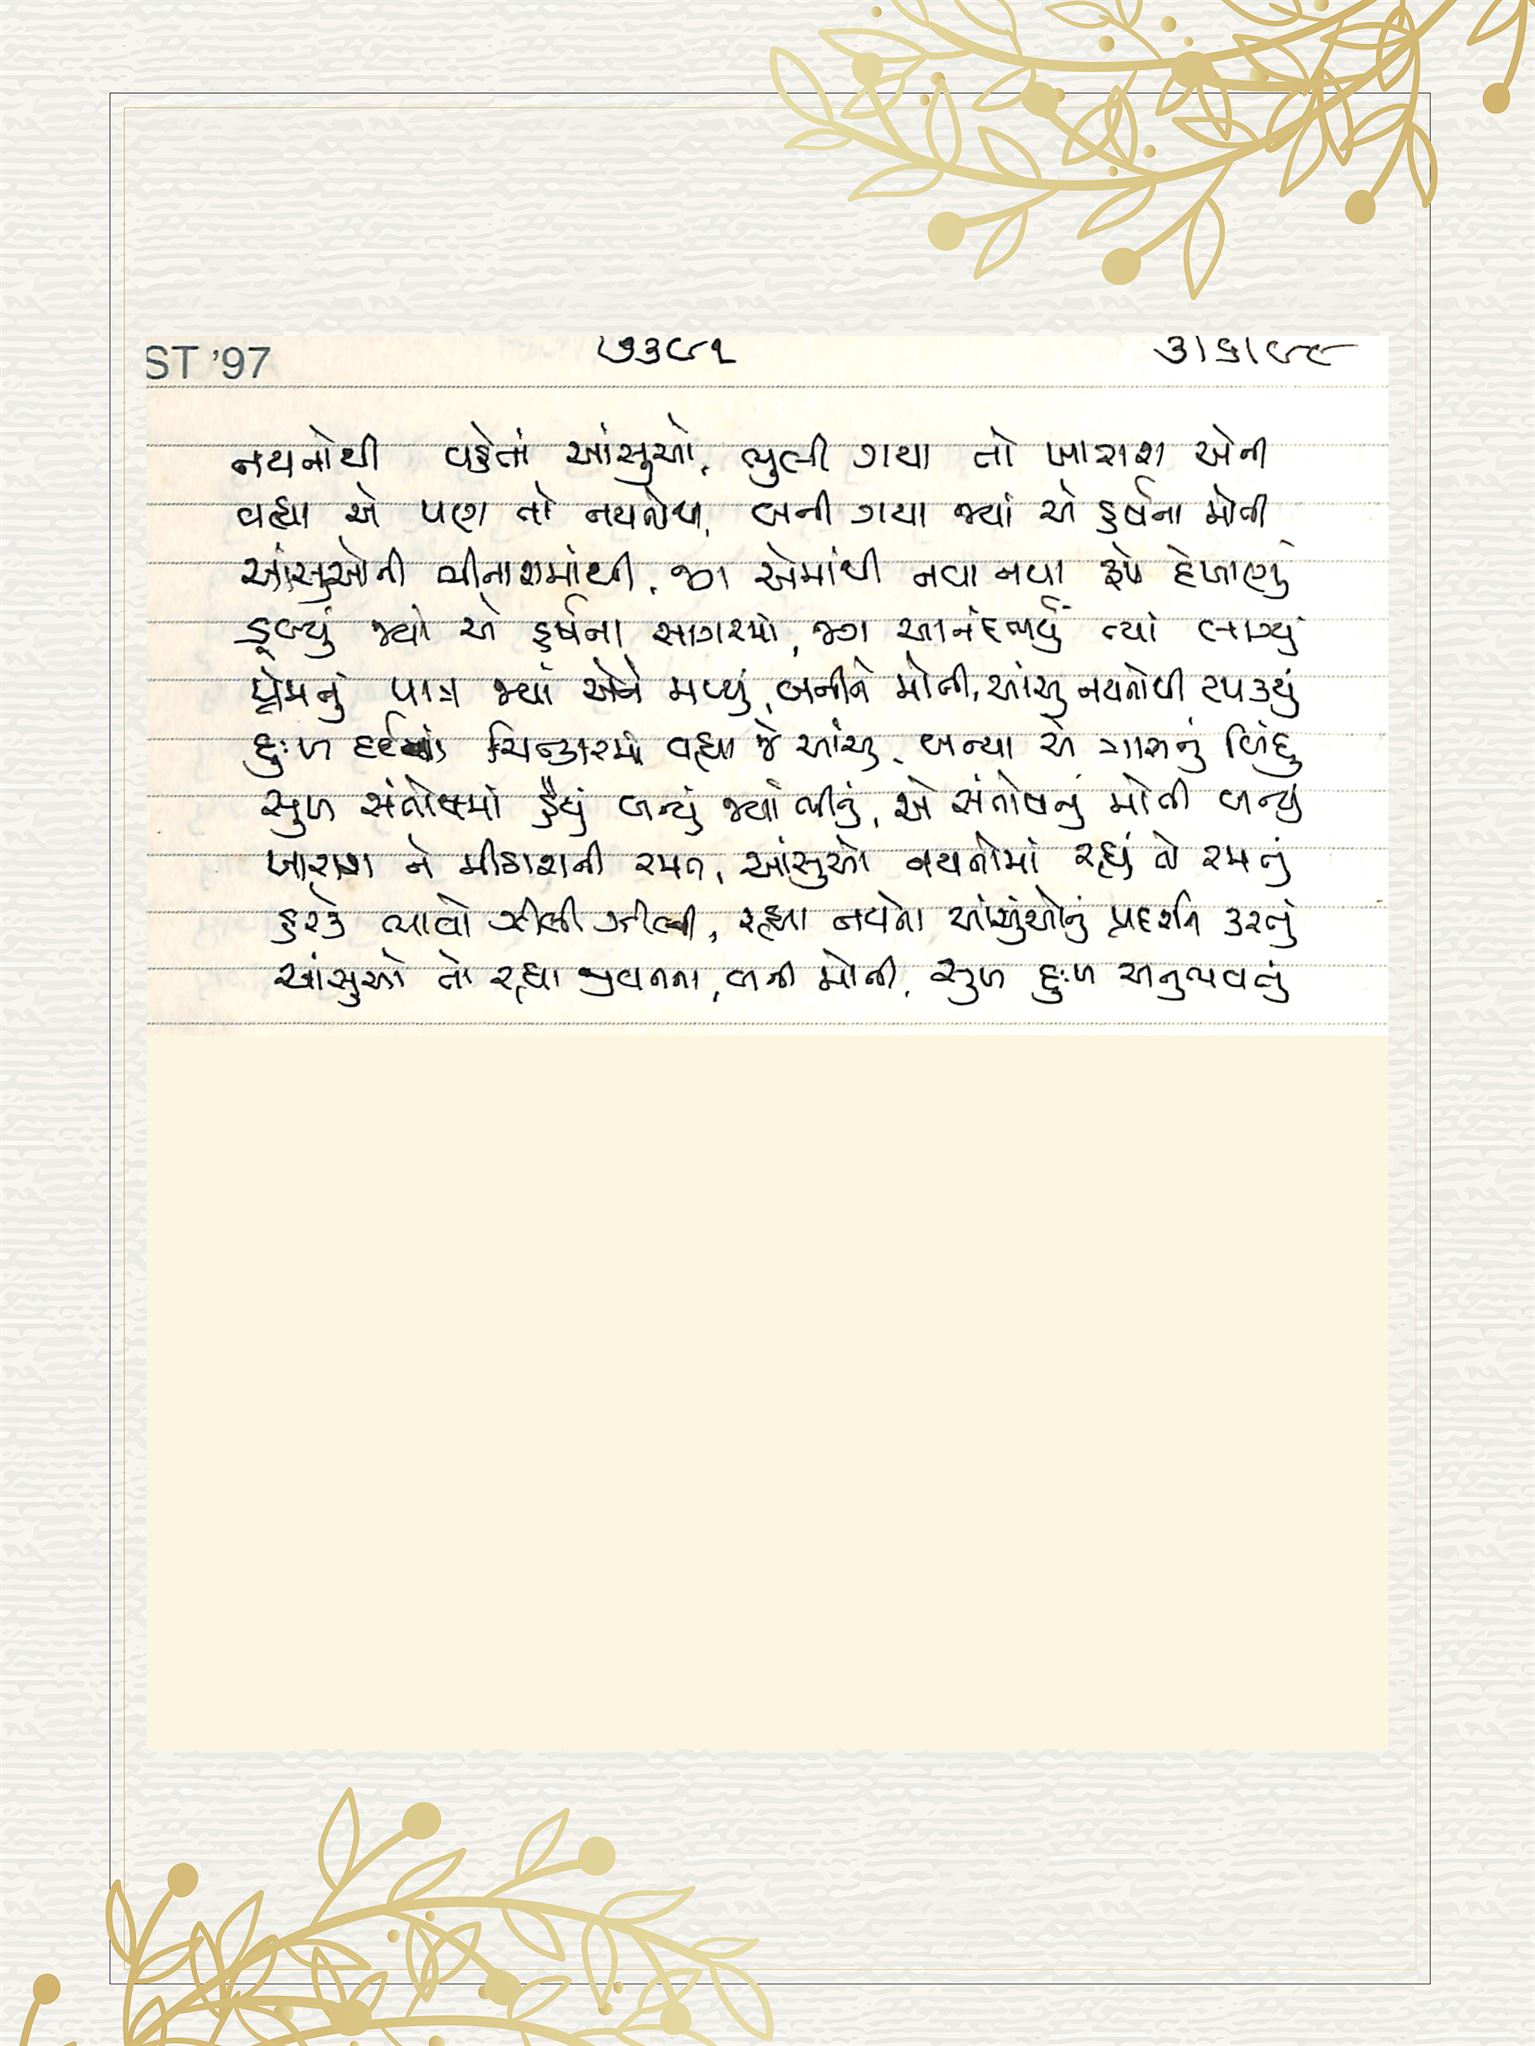 ST '97 ૭૩૯૧ ૩।૬।૯૯
નયનોથી વહેતાં આંસુઓ, ભુલી ગયા તો ખારાશ એની
વહ્યા એ પણ તો નયનોથી, બની ગયા જ્યાં એ હર્ષના મોતી
આંસુઓની ભીનાશમાંથી, જગ એમાંથી નવા નવા રૂપે દેખાણું
ડૂબ્યું જ્યાં એ હર્ષના સાગરમાં, જગ આનંદભર્યું ત્યાં લાગ્યું
પ્રેમનું પાત્ર જ્યાં એને મળ્યું, બનીને મોતી, આંસુ નયનોથી ટપક્યું
દુઃખ દર્દમાં ચિત્કારમાં વહ્યા જે આંસુ, બન્યા એ ત્રાસનું બિંદુ
સુખ સંતોષમાં હૈયું બન્યું જ્યાં ભીનું, એ સંતોષનું મોતી બન્યું
ખારાશ ને મીઠાશની રમત, આંસુઓ નયનોમાં રહ્યું તો રમતું
હરેક ભાવો ઝીલી ઝીલી, રહ્યા નયનો આંસુઓનું પ્રદર્શન કરતું
આંસુઓ તો રહ્યા જીવનના, બની મોતી, સુખ દુઃખ અનુભવતું